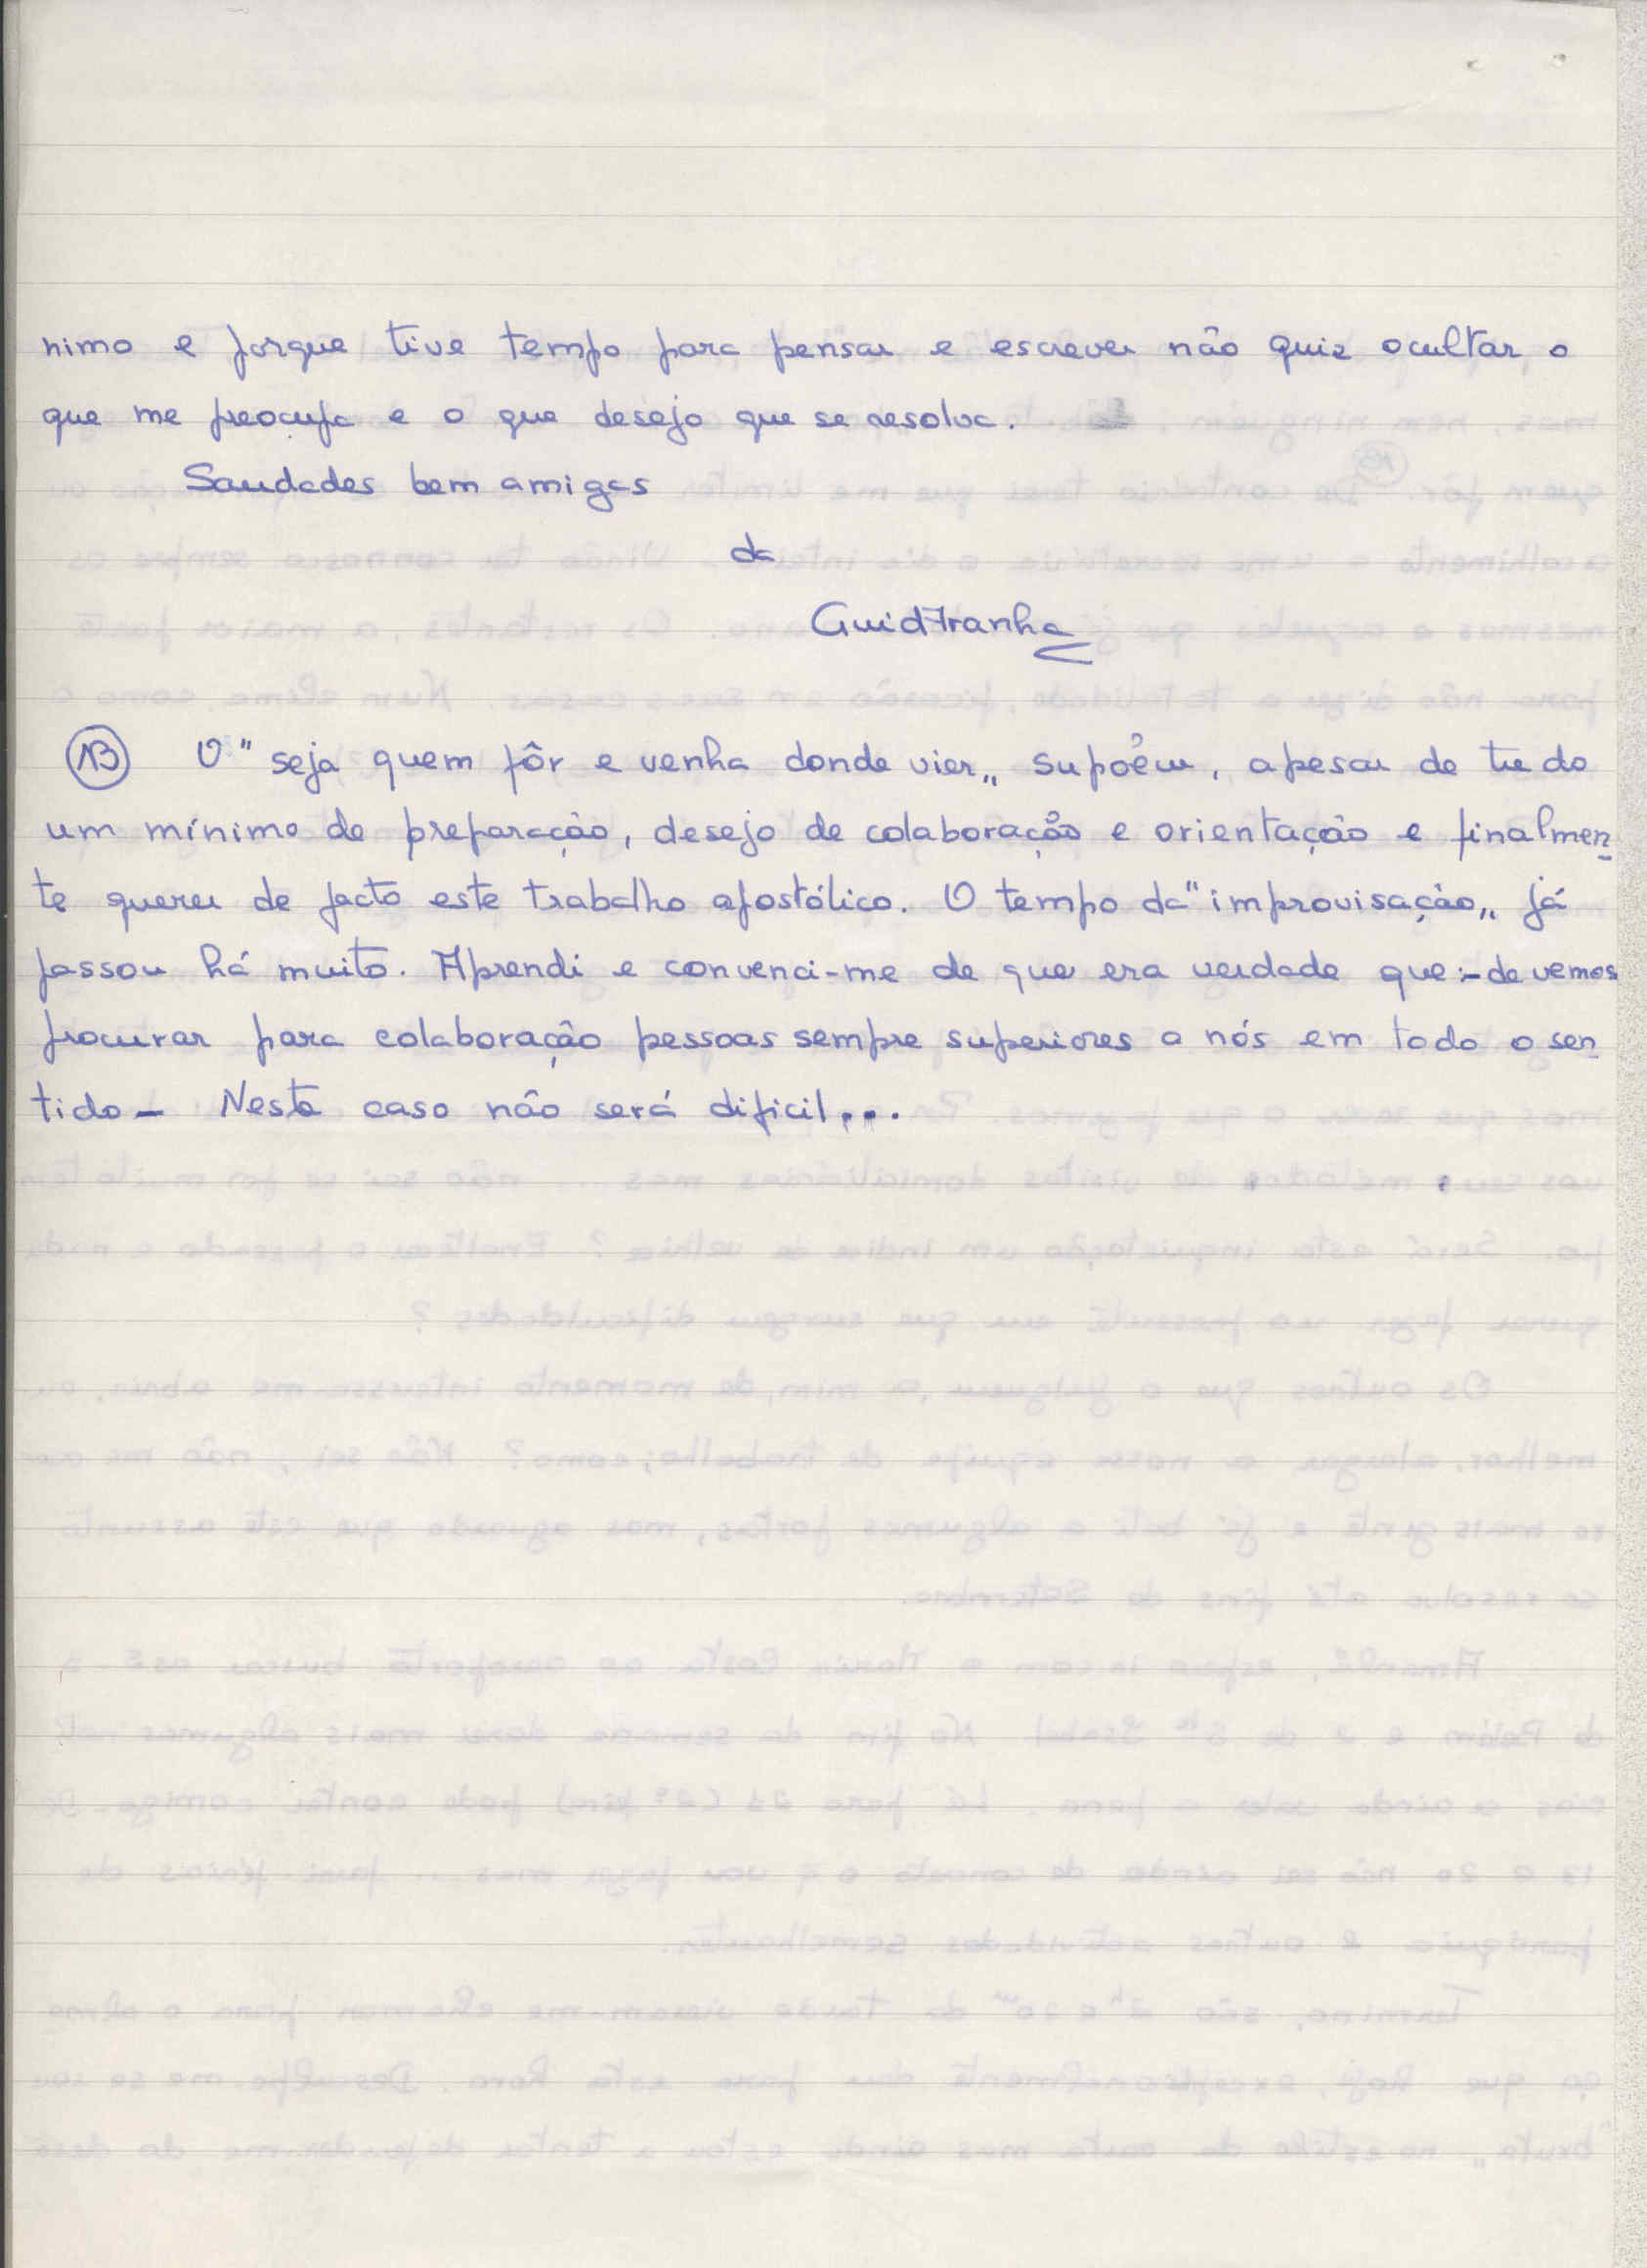 nimo e porque tive tempo para pensar e escrever não quiz ocultar o
que me preocupa e o que desejo que se resolva.
Saudades bem amigas
da
(NB) O "seja quem fôr e venha donde vier„ supoêm, apesar de tudo
um mínimo de preparação, desejo de colaboração e orientação e finalmen-
te querer de facto este trabalho apostólico. O tempo da "improvisação„ já
passou há muito. Aprendi e convenci-me de que era verdade que:- devemos
procurar para colaboração pessoas sempre superiores a nós em todo o sen-
tido - Neste caso não será dificil...